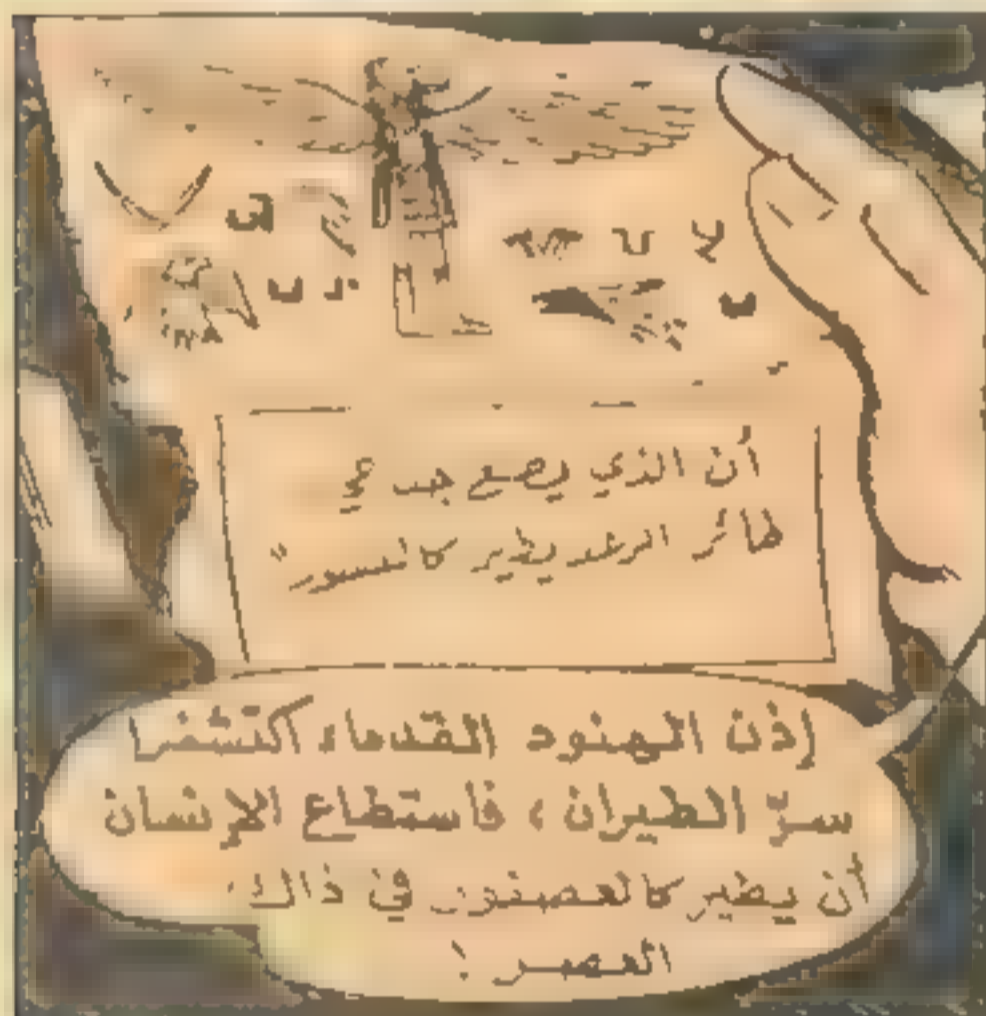 أن الذي يصع جب
طائر الرعد يطير كالنسور"
إذن الهنود القدماء اكتشفرا
سرّ الطيران ، فأستطاع الإنسان
أن يطير كالعصفور في ذلك
العصر !